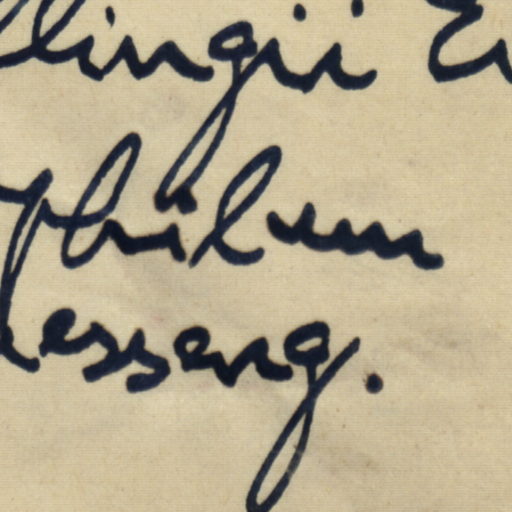 llingii En
philum
esseng.